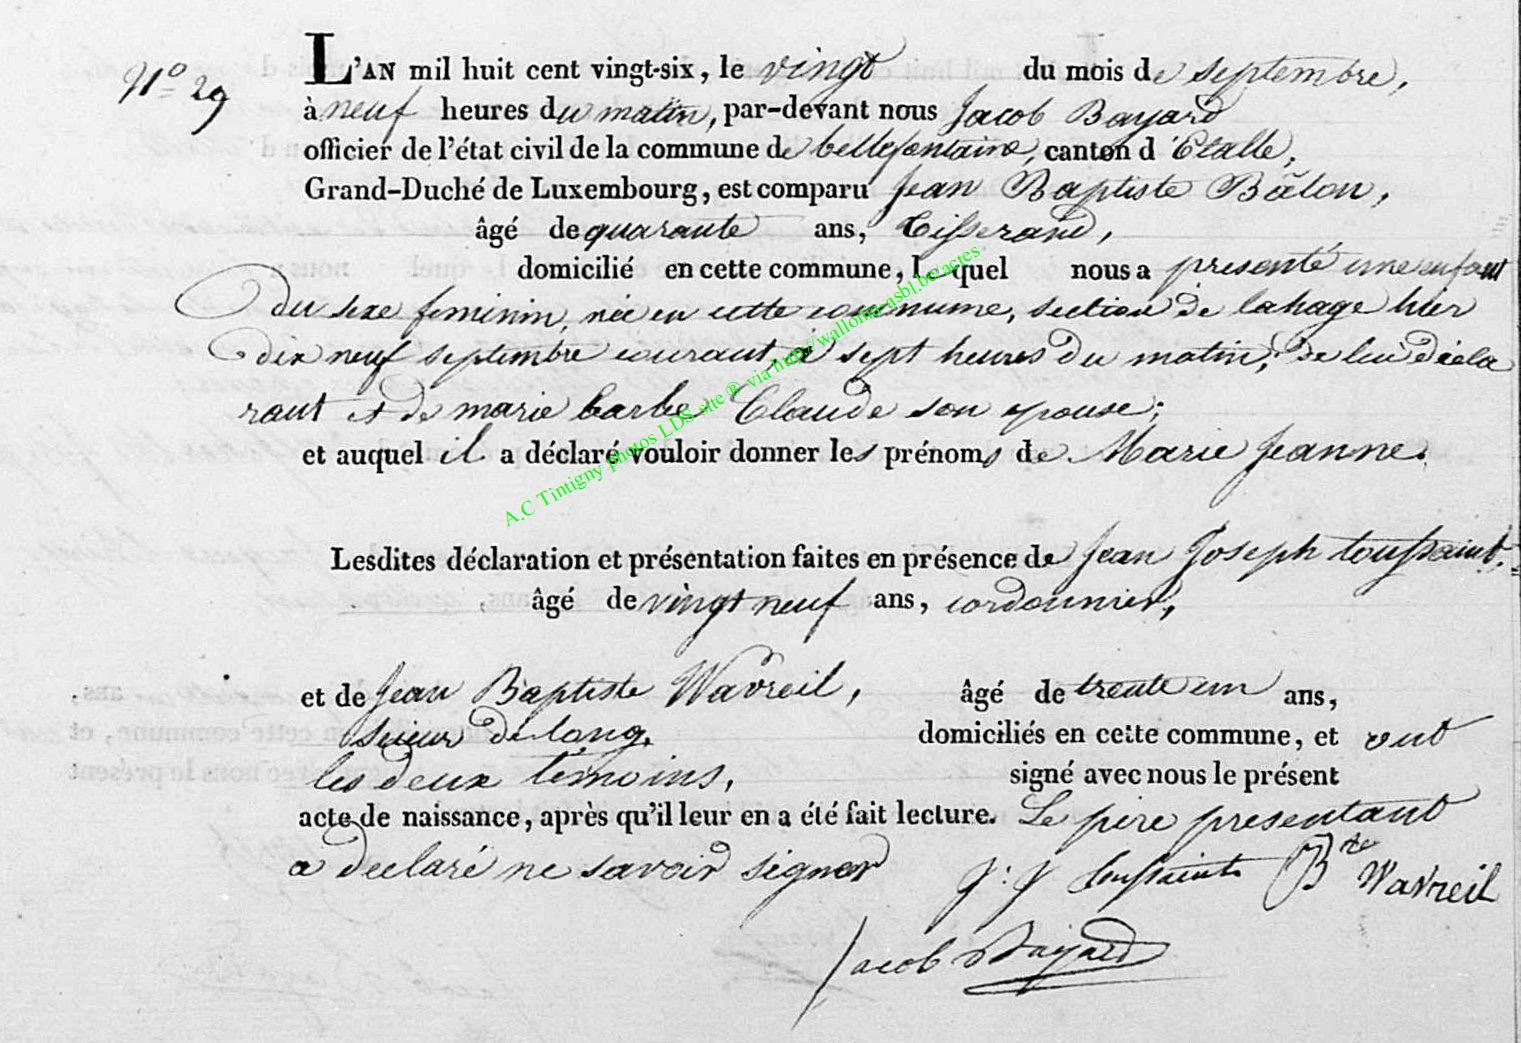 N° 29
L'AN mil huit cent vingt-six, le vingt du mois de septembre,
à neuf heures du matin, par-devant nous Jacob Bayard
officier de l'état civil de la commune de bellefontaine, canton d'Etalle,
Grand-Duché de Luxembourg, est comparu Jean Baptiste Bâlon,
âgé de quarante ans, tisserand,
domicilié en cette commune, Lequel nous a presenté une enfant
du sexe feminin, née en cette commune, section de lahage hier
dix neuf septembre courant, à sept heures du matin, de lui décla
rant et de marie barbe Claude son epouse;
et auquel il a déclaré vouloir donner les prénoms de Marie Jeanne.
A.C Tintigny photos LDS site ® via http://wallonia-asbl.be/actes
Lesdites déclaration et présentation faites en présence de Jean Joseph toussaint,
âgé de vingt neuf ans, cordonnier,
et de Jean Baptiste Wavreil, âgé de trente un ans,
scieur de long, domiciliés en cette commune, et ont
les deux témoins, signé avec nous le présent
acte de naissance, après qu'il leur en a été fait lecture. Le père presentant
a declaré ne savoir signer J: J toussaint Bte Wavreil
Jacob Bayard